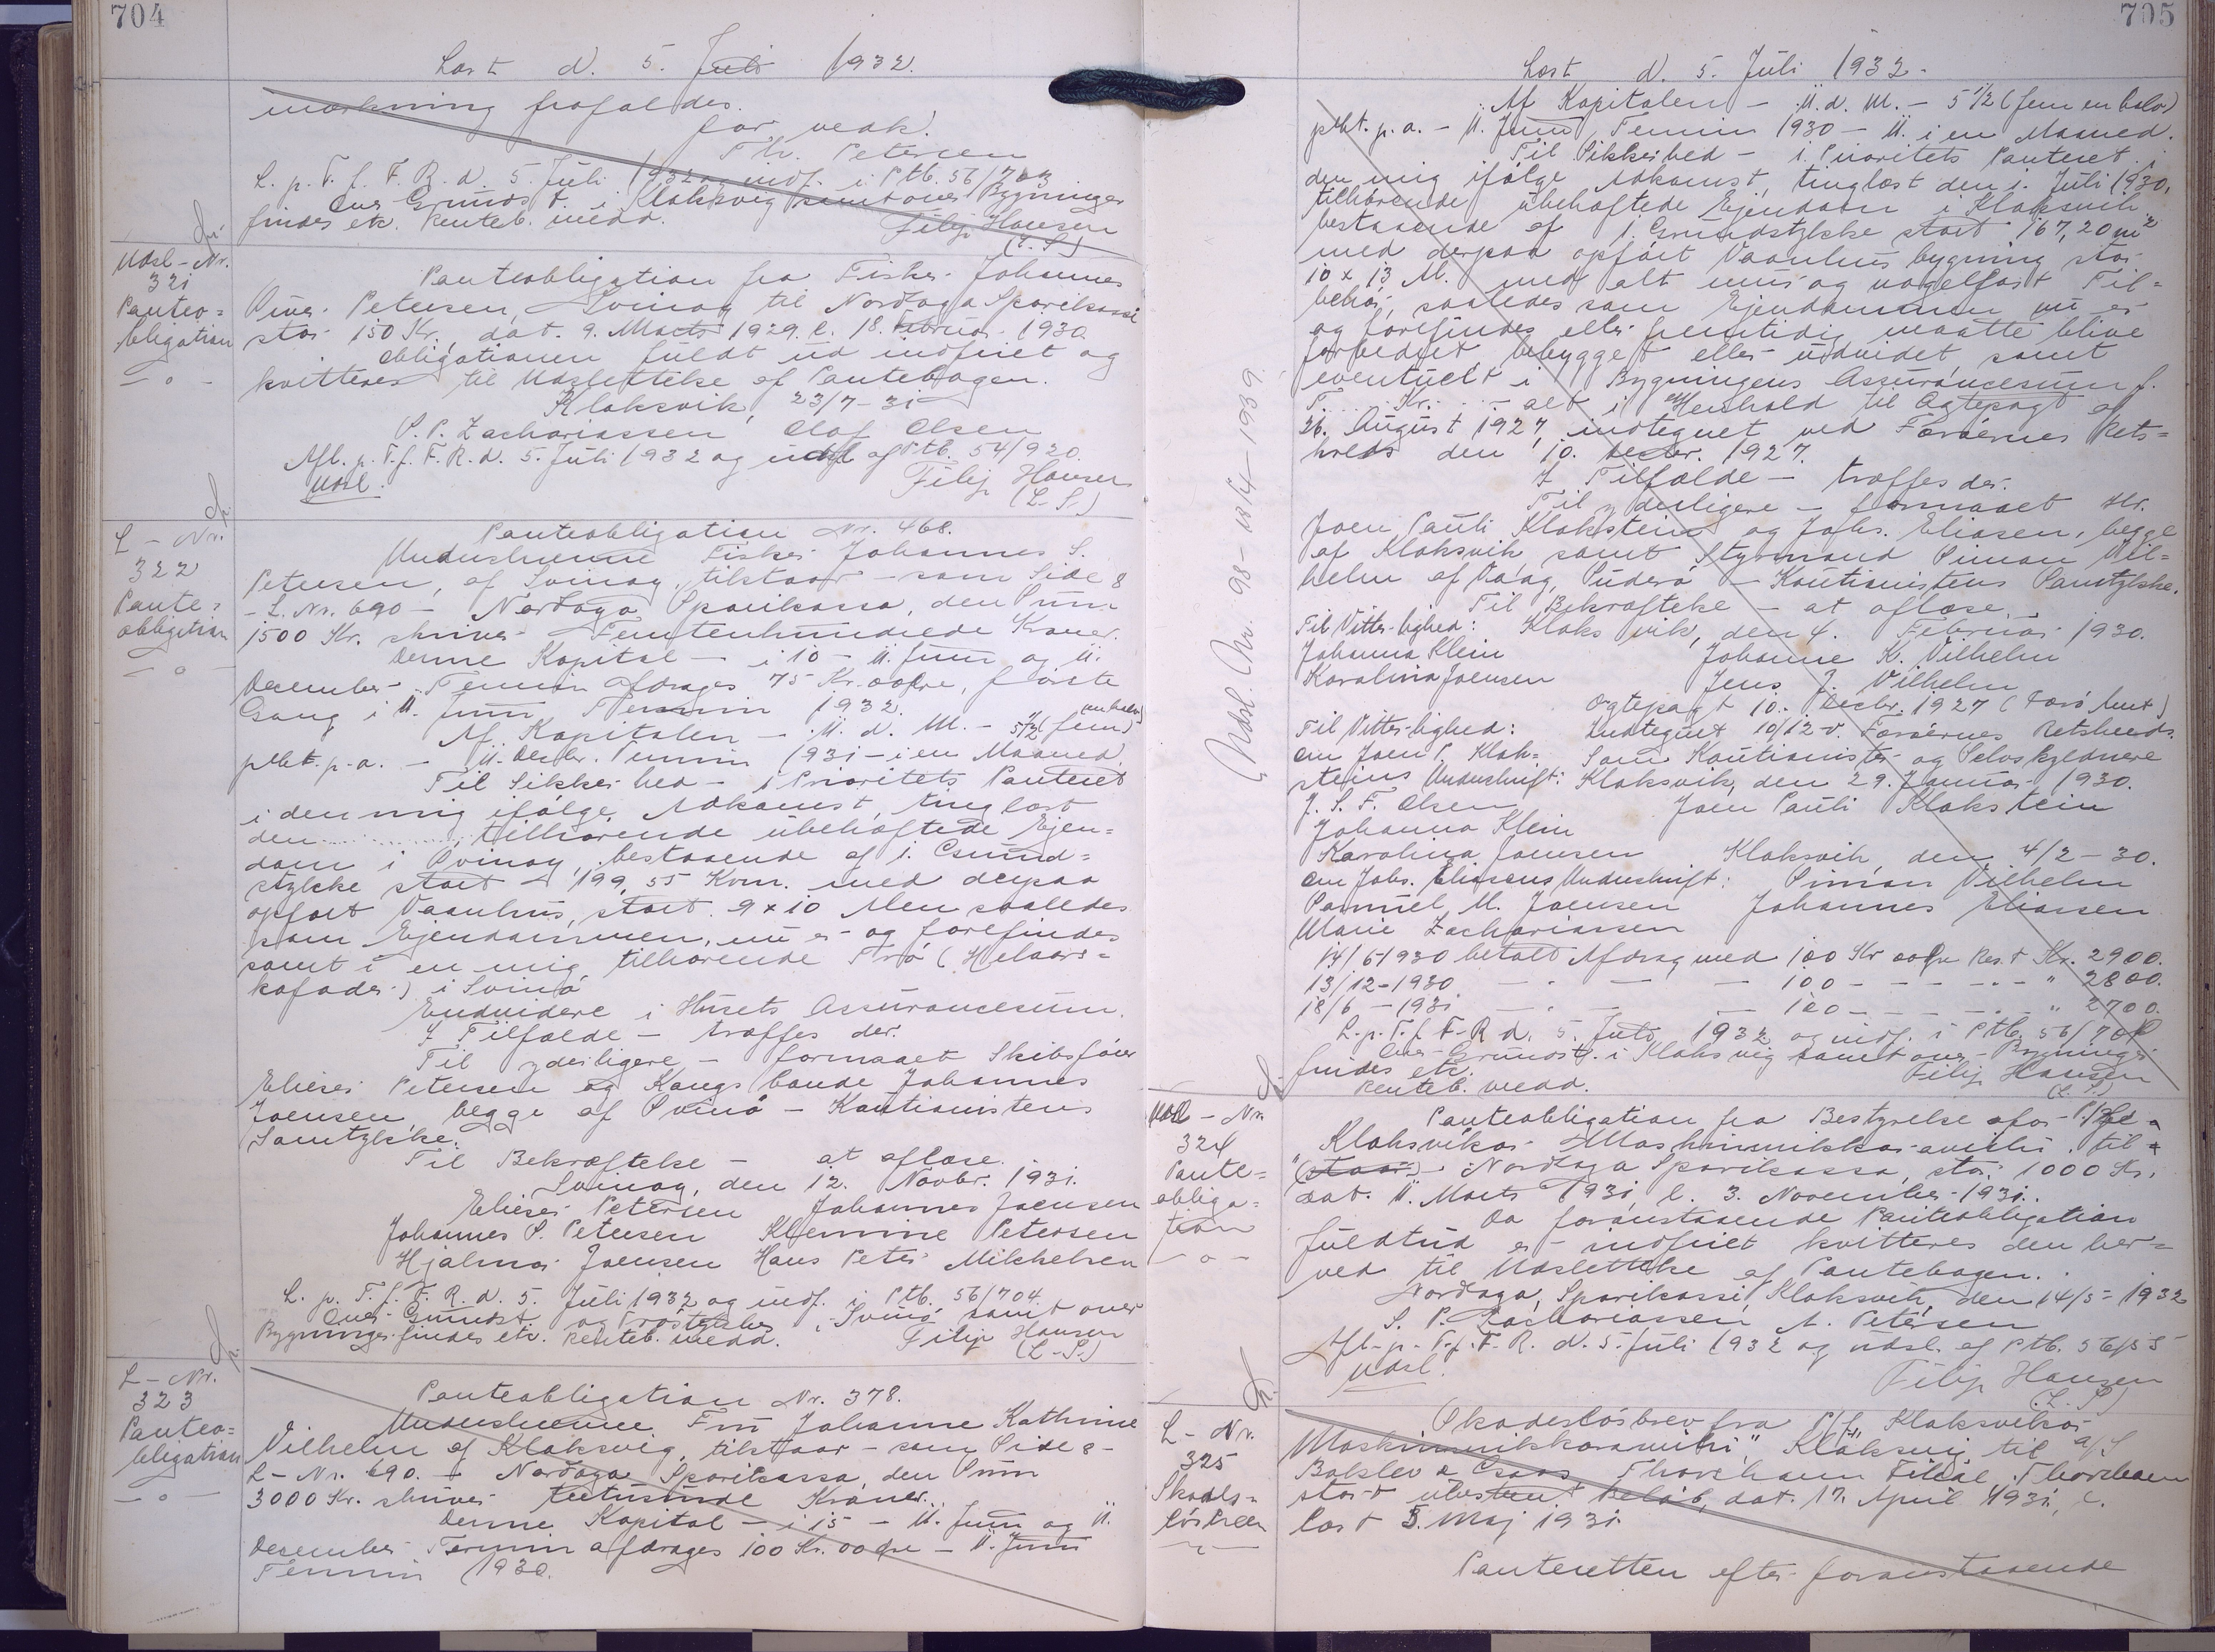 704
Læst d. 5. Juli 1932.
mærkning frafaldes.
for vedk.
Th. Petersen
L. p. T. f. F. R. d. 5. Juli 1932 og indf. i Ptb. 56/703
Over Grundst. i Klaksvig samt over Bygninger
findes etc. Renteb. medd. Filip Hansen
(L. S.)
Udsl - Nr.
321
Panteo=
bligation
- o -
Panteobligation fra Fisker Johannes
Petersen, Svinoy til Nordoya Sparikassi
stor 150 Kr. dat. 9. Marts 1929. l. 18. Februar 1930.
Obligationen fuldt ud indfriet og
kvitteres til Udslettelse af Pantebogen.
Klaksvik, 23/7-31
S. P. Zachariassen Olaf Olsen
Afl. p. T. f. F. R. d. 5. Juli 1932 og udsl af Ptb. 54/920.
Udsl. Filip Hansen
(L. S.)
L - Nr.
322
Pante=
obligation
- o -
Panteobligation Nr. 468.
Undershrevne Fisker Johannes S.
Petersen, af Svinoy, tilstaar - som Side 8
- L. Nr. 690 - Nordoya Sparikassa, den Sum
1500 Kr. skriver Femtenhundrede Kroner.
Denne Kapital - i 10 - 11. Juni og 11.
December Termin afdrages 75 Kr. 00 Øre, første
Gang i 11. Juni Termin 1932.
Af Kapitalen - 11. d. M. - 5 1/2 (fem en halv)
pCt. p. a. - 11. Decbr. Termin 1931 - i en Maaned.
Til Sikkerhed - 1 Prioritets Panteret
i den mig ifølge Adkomst, tinglæst
den ............, tilhørende ubehæftede Ejen=
dom i Svinoy, bestaaende af 1. Grund=
stykke stort 199,55 Kvm. med derpaa
opført Vaanhus, stort 9 x 10 Alen saaledes
som Ejendommen, nu er og forefindes
samt i en mig tilhørende Trø (Helaars=
kofoder) i Svinø
Endvidere i Husets Assurancesum.
I Tilfælde - træffes der.
Til yderligere - formaaet Skibsfører
Elieser Petersen og Kongsbonde Johannes
Joensen, begge af Svinø - Kautionistens
Samtykke.
Til Bekræftelse - at aflæse.
Svinoy, den 12. Novbr. 1931.
Elieser Petersen Johannes Joensen
Johannes S. Petersen Klemine Petersen
Hjalmar Joensen Hans Peter Mikkelsen
L. p. T. f. F. R. d. 5. Juli 1932 og indf. i Ptb. 56/704
Over Grundst. og Trøstykker i Svinø samt over
Bygninger findes etc. Renteb. medd. Filip Hansen
(L. S.)
L - Nr.
323
Panteo=
bligation
- o -
Panteobligation Nr. 378.
Undershrevne Fru Johanne Kathrine
Vilhelm af Klaksvig, tilstaar - som Side 8 -
L - Nr. 690. - Nordoya Sparikassa, den Sum
3000 Kr. skriver Tretusinde Kroner.
Denne Kapital - i 15 - 11. Juni og 11.
December Termin afdrages 100 Kr. 00 Øre - 11. Juni
Termin 1930.
705
Læst d. 5. Juli 1932.
Af Kapitalen - 11. d. M. - 5 1/2 (fem en halv)
pCt. p. a. - 11. Juni Termin 1930 - 11. i en Maaned.
Til Sikkerhed - 1. Prioritets Panteret i
den mig ifølge Adkomst, tinglæst den 1. Juli 1930,
tilhørende ubehæftede Ejendom i Klaksvik
bestaaende af 1. Grundstykke stort 167,20 m²
med derpaa opført Vaanhus bygning stor
10 x 13 Al. med alt mur og nagelfast Til=
behør, saaledes som Ejendommen nu er
og forefindes eller fremtidig maatte blive
forbedret, bebygget eller udvidet samt
eventuelt i Bygningens Assurancesum f.
T. .... Kr. .... - alt i Henhold til Ægtepagt af
26. August 1927, indtegnet ved Færøernes Rets=
kreds den 10. Decbr. 1927.
I Tilfælde - træffes der.
Til yderligere - formaaet Hr.
Joen Pauli Klakstein og Johs. Eliasen, begge
af Klaksvik samt Styrmand Simon Vil=
helm af Vaag, Suderø - Kautionistens Samtykke.
Til Bekræftelse - at aflæse.
Til Vitterlighed: Klaksvik, den 4. Februar 1930.
Johanna Klein Johanne K. Vilhelm
Karolina Joensen Jens J. Vilhelm
Ægtepagt 10. Decbr. 1927 (Færø Amt)
Til Vitterlighed: Indtegnet 10/12 v. Færøernes Retskreds.
om Joen P. Klak= Som Kautionister og Selvskyldnere
steins Underskrift: Klaksvik, den 29. Januar 1930.
J. S. F. Olsen Joen Pauli Klakstein
Johanna Klein
Karolina Joensen Klaksvik, den 4/2 - 30.
om Johs. Eliasens Underskrift: Simon Vilhelm
Samuel M. Joensen Johannes Eliasen
Marie Zachariassen
14/6-1930 betalt Afdrag med 100 Kr 00 Øre Rest Kr. 2900.
13/12-1930 - - - 100 - - - - " 2800.
18/6-1931 - - - 100 - - - - " 2700.
L. p. T. f. F. R. d. 5. Juli 1932 og indf. i Ptb. 56/704
Over Grundst. i Klaksvig samt over Bygninger
findes etc. Filip Hansen
Renteb. medd. (L. S.)
Udsl. Nr. 98 - 13/4 - 1939.
Udsl - Nr.
324
Pante=
obliga=
tion
- o -
Panteobligation fra Bestyrelse for P/f
Klaksvikar Maskinmikkaraverki til=
"(staar)" Nordoya Sparikassa, stor 1000 Kr.
dat. 11. Marts 1931, l. 3. November 1931.
Da foranstaaende Panteobligation
fuldtud er indfriet kvitteres den her=
ved til Udslettelse af Pantebogen.
Nordoya Sparikassi, Klaksvik, den 14/5 - 1932
S. P. Zachariassen A. Petersen
Afl. p. T. f. F. R. d. 5. Juli 1932 og udsl. af Ptb. 56/55
Udsl. Filip Hansen
(L. S.)
L - Nr.
325
Skades=
løsbrev
Skadesløsbrev fra P/f "Klaksvikar
Maskinmikkaraverki", Klaksvig til A/S
Balslev & Thorshavn Filial, Thorshavn
stort ubestemt Beløb, dat. 17. April 1931, l.
læst 5. Maj 1931.
Panteretten efter foranstaaende